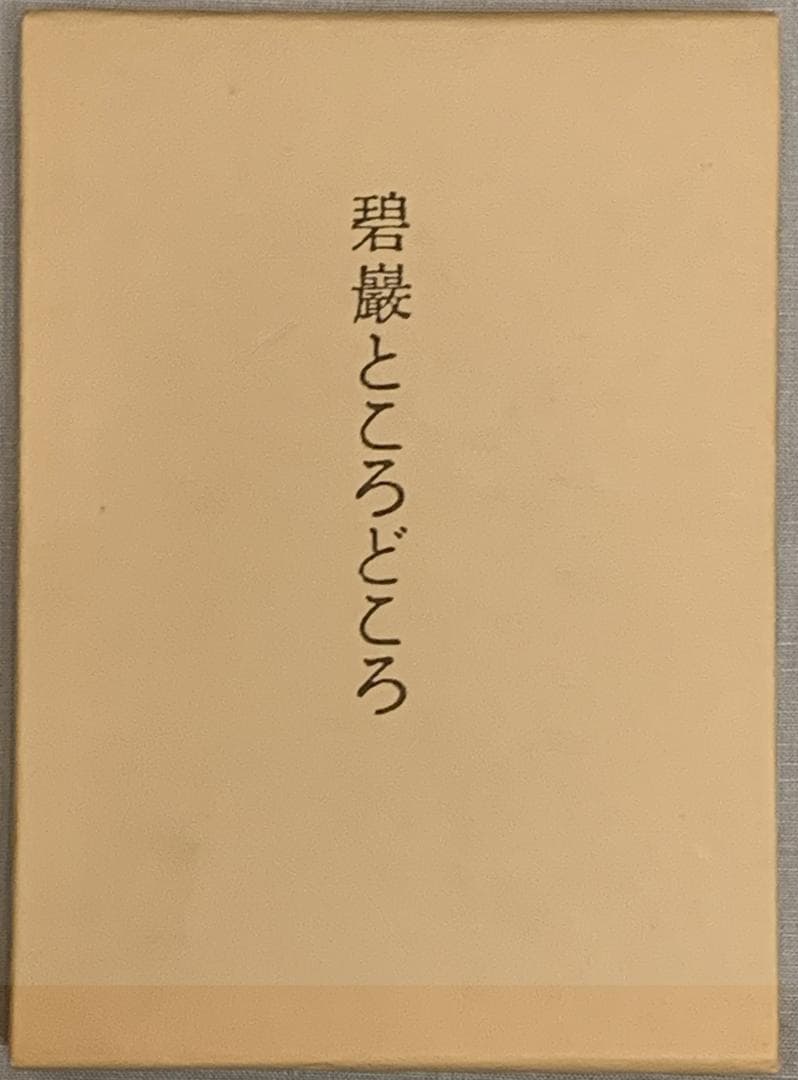 碧巖ところどころ